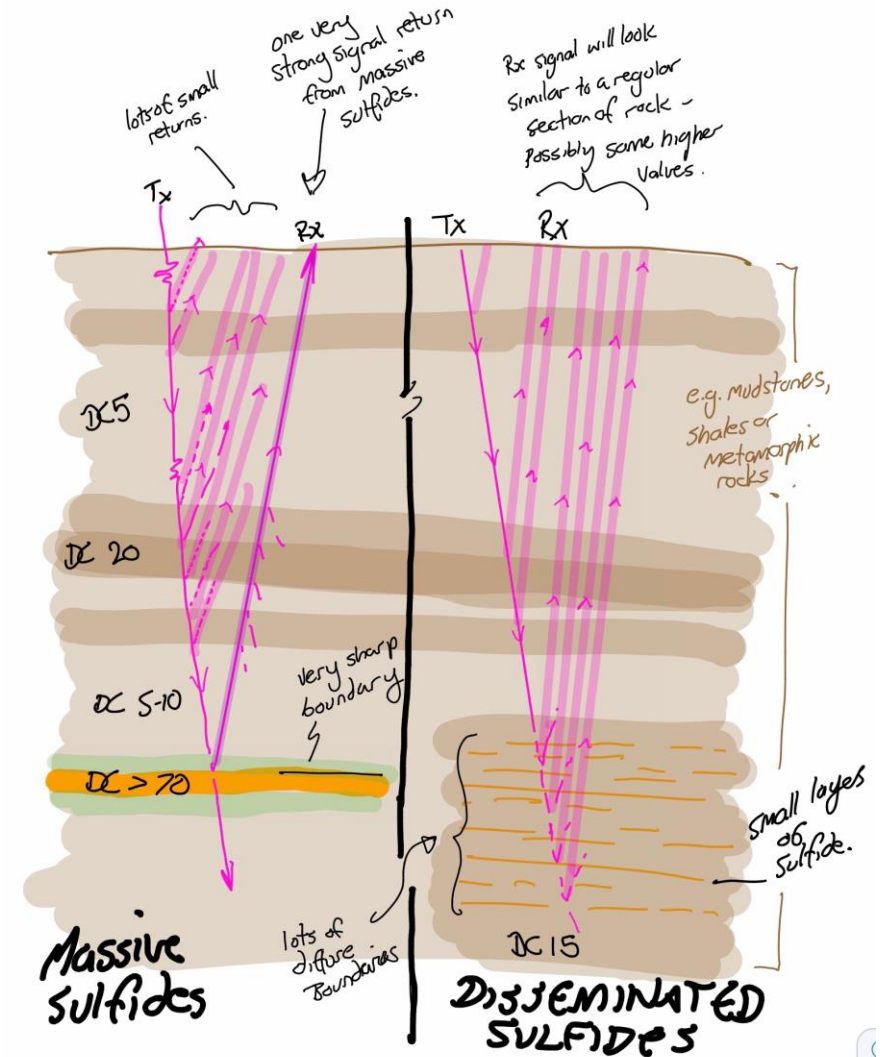 lots of small
returns.
one very
strong signal return
from Massive
sulfides.
Rx signal will look
similar to a regular
section of rock -
Possibly some higher
values.
Tx
Rx
Tx
Rx
DC5
e.g. mudstones,
shales or
metamorphic
rocks
DC 20
very sharp
boundary
DC 5-10
DC > 70
small layes
of
sulfide.
lots of
diffuse
Boundaries
DC 15
Massive
Sulfides
DISSEMINATED
SULFIDES